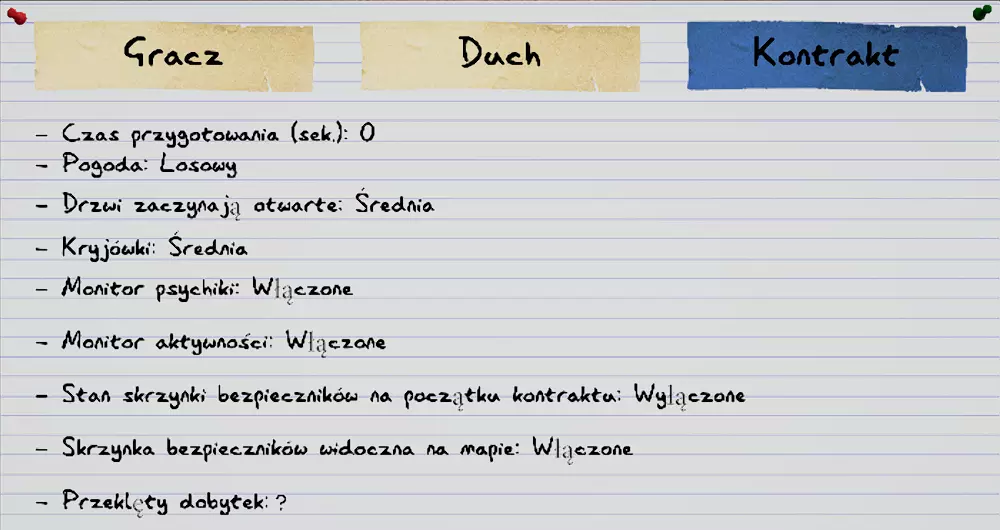 Gracz Duch Kontrakt
- Czas przygotowania (sek.): 0
- Pogoda: Losowy
- Drzwi zaczynają otwarte: Średnia
- Kryjówki: Średnia
- Monitor psychiki: Włączone
- Monitor aktywności: Włączone
- Stan skrzynki bezpieczników na początku kontraktu: Wyłączone
- Skrzynka bezpieczników widoczna na mapie: Włączone
- Przeklęty dobytek: ?